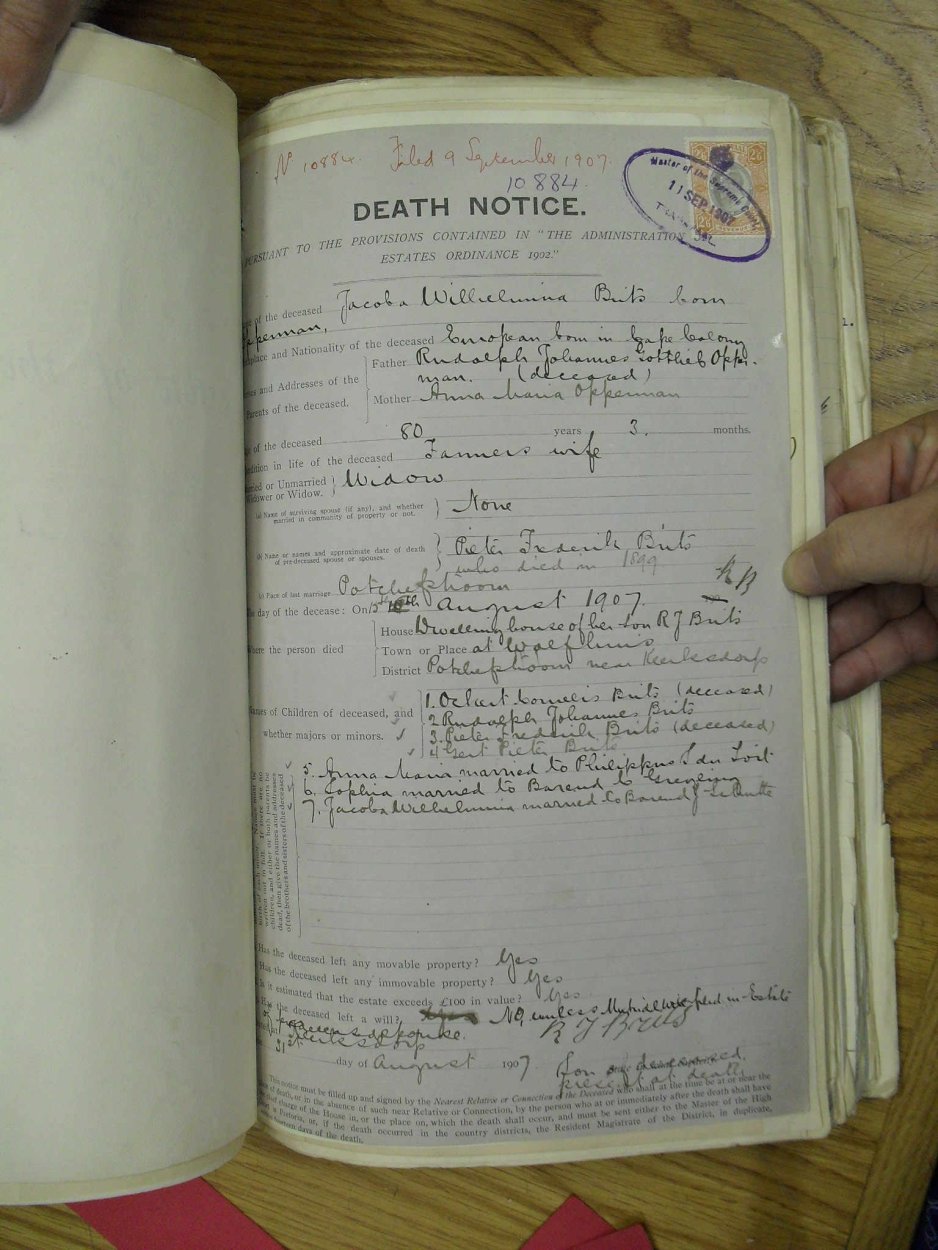 No 10884. Filed 9 September 1907.
10884.
2/6 2/6
Master of the Supreme Court
11 SEP 1907
TRANSVAAL
DEATH NOTICE.
PURSUANT TO THE PROVISIONS CONTAINED IN "THE ADMINISTRATION
ESTATES ORDINANCE 1902."
of the deceased Jacoba Wilhelmina Brits born
pperman,
place and Nationality of the deceased European born in Cape Colony
Father Rudolph Johannes Gottlieb Opper-
man. (deceased)
es and Addresses of the
Parents of the deceased.
Mother Anna Maria Opperman
of the deceased 80 years 3. months.
dition in life of the deceased Farmers wife
ried or Unmarried
Widower or Widow. } Widow
(a) Name of surviving spouse (if any), and whether
married in community of property or not. } None
(b) Name or names and approximate date of death
of pre-deceased spouse or spouses. } Pieter Frederik Brits
who died in 1899
(c) Place of last marriage Potchefstroom
RB
day of the decease: On 15th August 1907.
House Dwelling house of her son R J Brits
here the person died Town or Place at
District Potchefstroom near Klerksdorp
ames of Children of deceased, and
whether majors or minors.
1. Ockert Cornelis Brits (deceased)
2 Rudolph Johannes Brits
3. Pieter Frederik Brits (deceased)
4 Gert Pieter Brits
5. Anna Maria married to Philippus J du Toit
6. Sophia married to Barend C Greyling
7. Jacoba Wilhelmina married to Barend J
written out in full. If there are no
children, and either or both parents be
dead, then give the names and addresses
of the brothers and sisters of the deceased
Has the deceased left any movable property? Yes
Has the deceased left any immovable property? Yes
Is it estimated that the estate exceeds £100 in value? Yes
Has the deceased left a will? No, unless Mutual Will filed in Estate
of spouse.
Klerksdorp
R J Brits
31st day of August 1907
Son of deceased.
present at death
This notice must be filled up and signed by the Nearest Relative or Connection of the Deceased who shall at the time be at or near the
of death, or in the absence of such near Relative or Connection, by the person who at or immediately after the death shall have
charge of the House in, or the place on, which the death shall occur, and must be sent either to the Master of the High
Pretoria, or, if the death occurred in the country districts, the Resident Magistrate of the District, in duplicate,
teen days of the death.